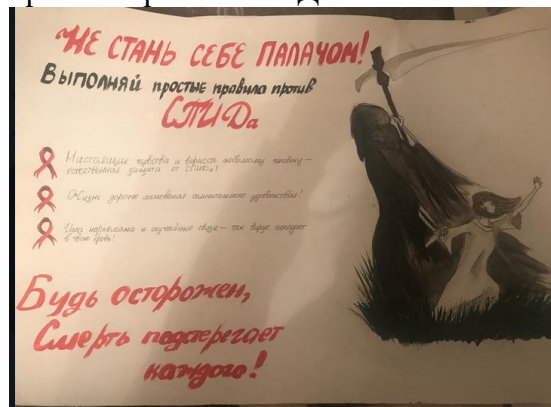 НЕ СТАНЬ СЕБЕ ПАЛАЧОМ!
Выполняй простые правила против
СПИДа
Настоящие чувства и верность любимому человеку —
естественная защита от СПИДа!
Жизнь дороже мгновения сомнительного удовольствия!
Игла наркомана и случайные связи — так вирус попадает
в твою кровь!
Будь осторожен,
Смерть подстерегает
каждого!